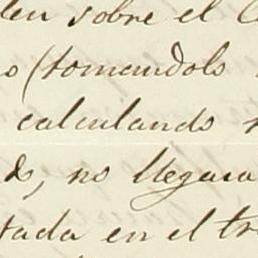 len sobre el
o (tomandolo
calculando
do, no llegara
tada en el tr